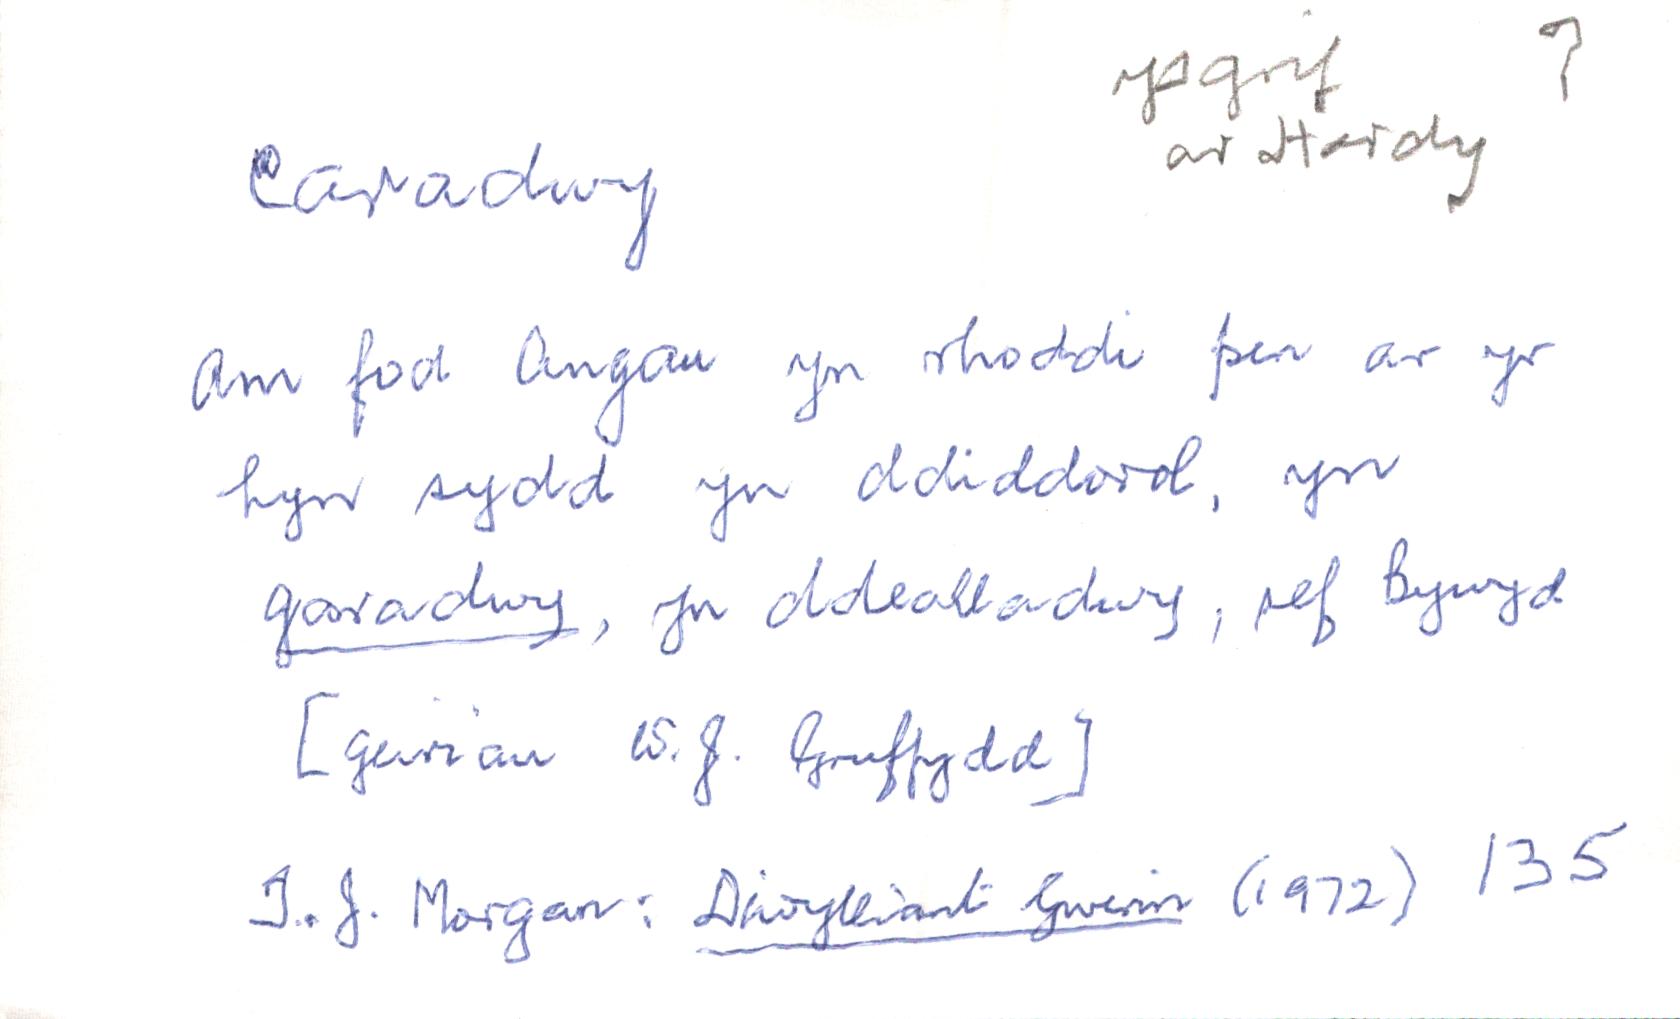 ysgrif ?
ar Hardy
Caradwy
Am fod Angau yn rhoddi pen ar yr
hyn sydd yn ddiddorol, yn
garadwy, yn ddealladwy, sef Bywyd
[geiriau W.J. Gruffydd]
T.J. Morgan: Diwylliant Gwerin (1972) 135